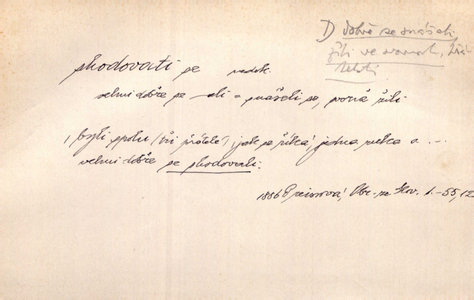 D dobře se snášeli,
žili ve svornosti,
shodovati se nedok.
velmi dobře se – ali = snášeli se, rovně žili
byli spolu (tři přátelé), jak se říká, jedna ruka a ...
velmi dobře se shodovali.
1886 Preissová, Obr. ze Slov. 1.–55, 12